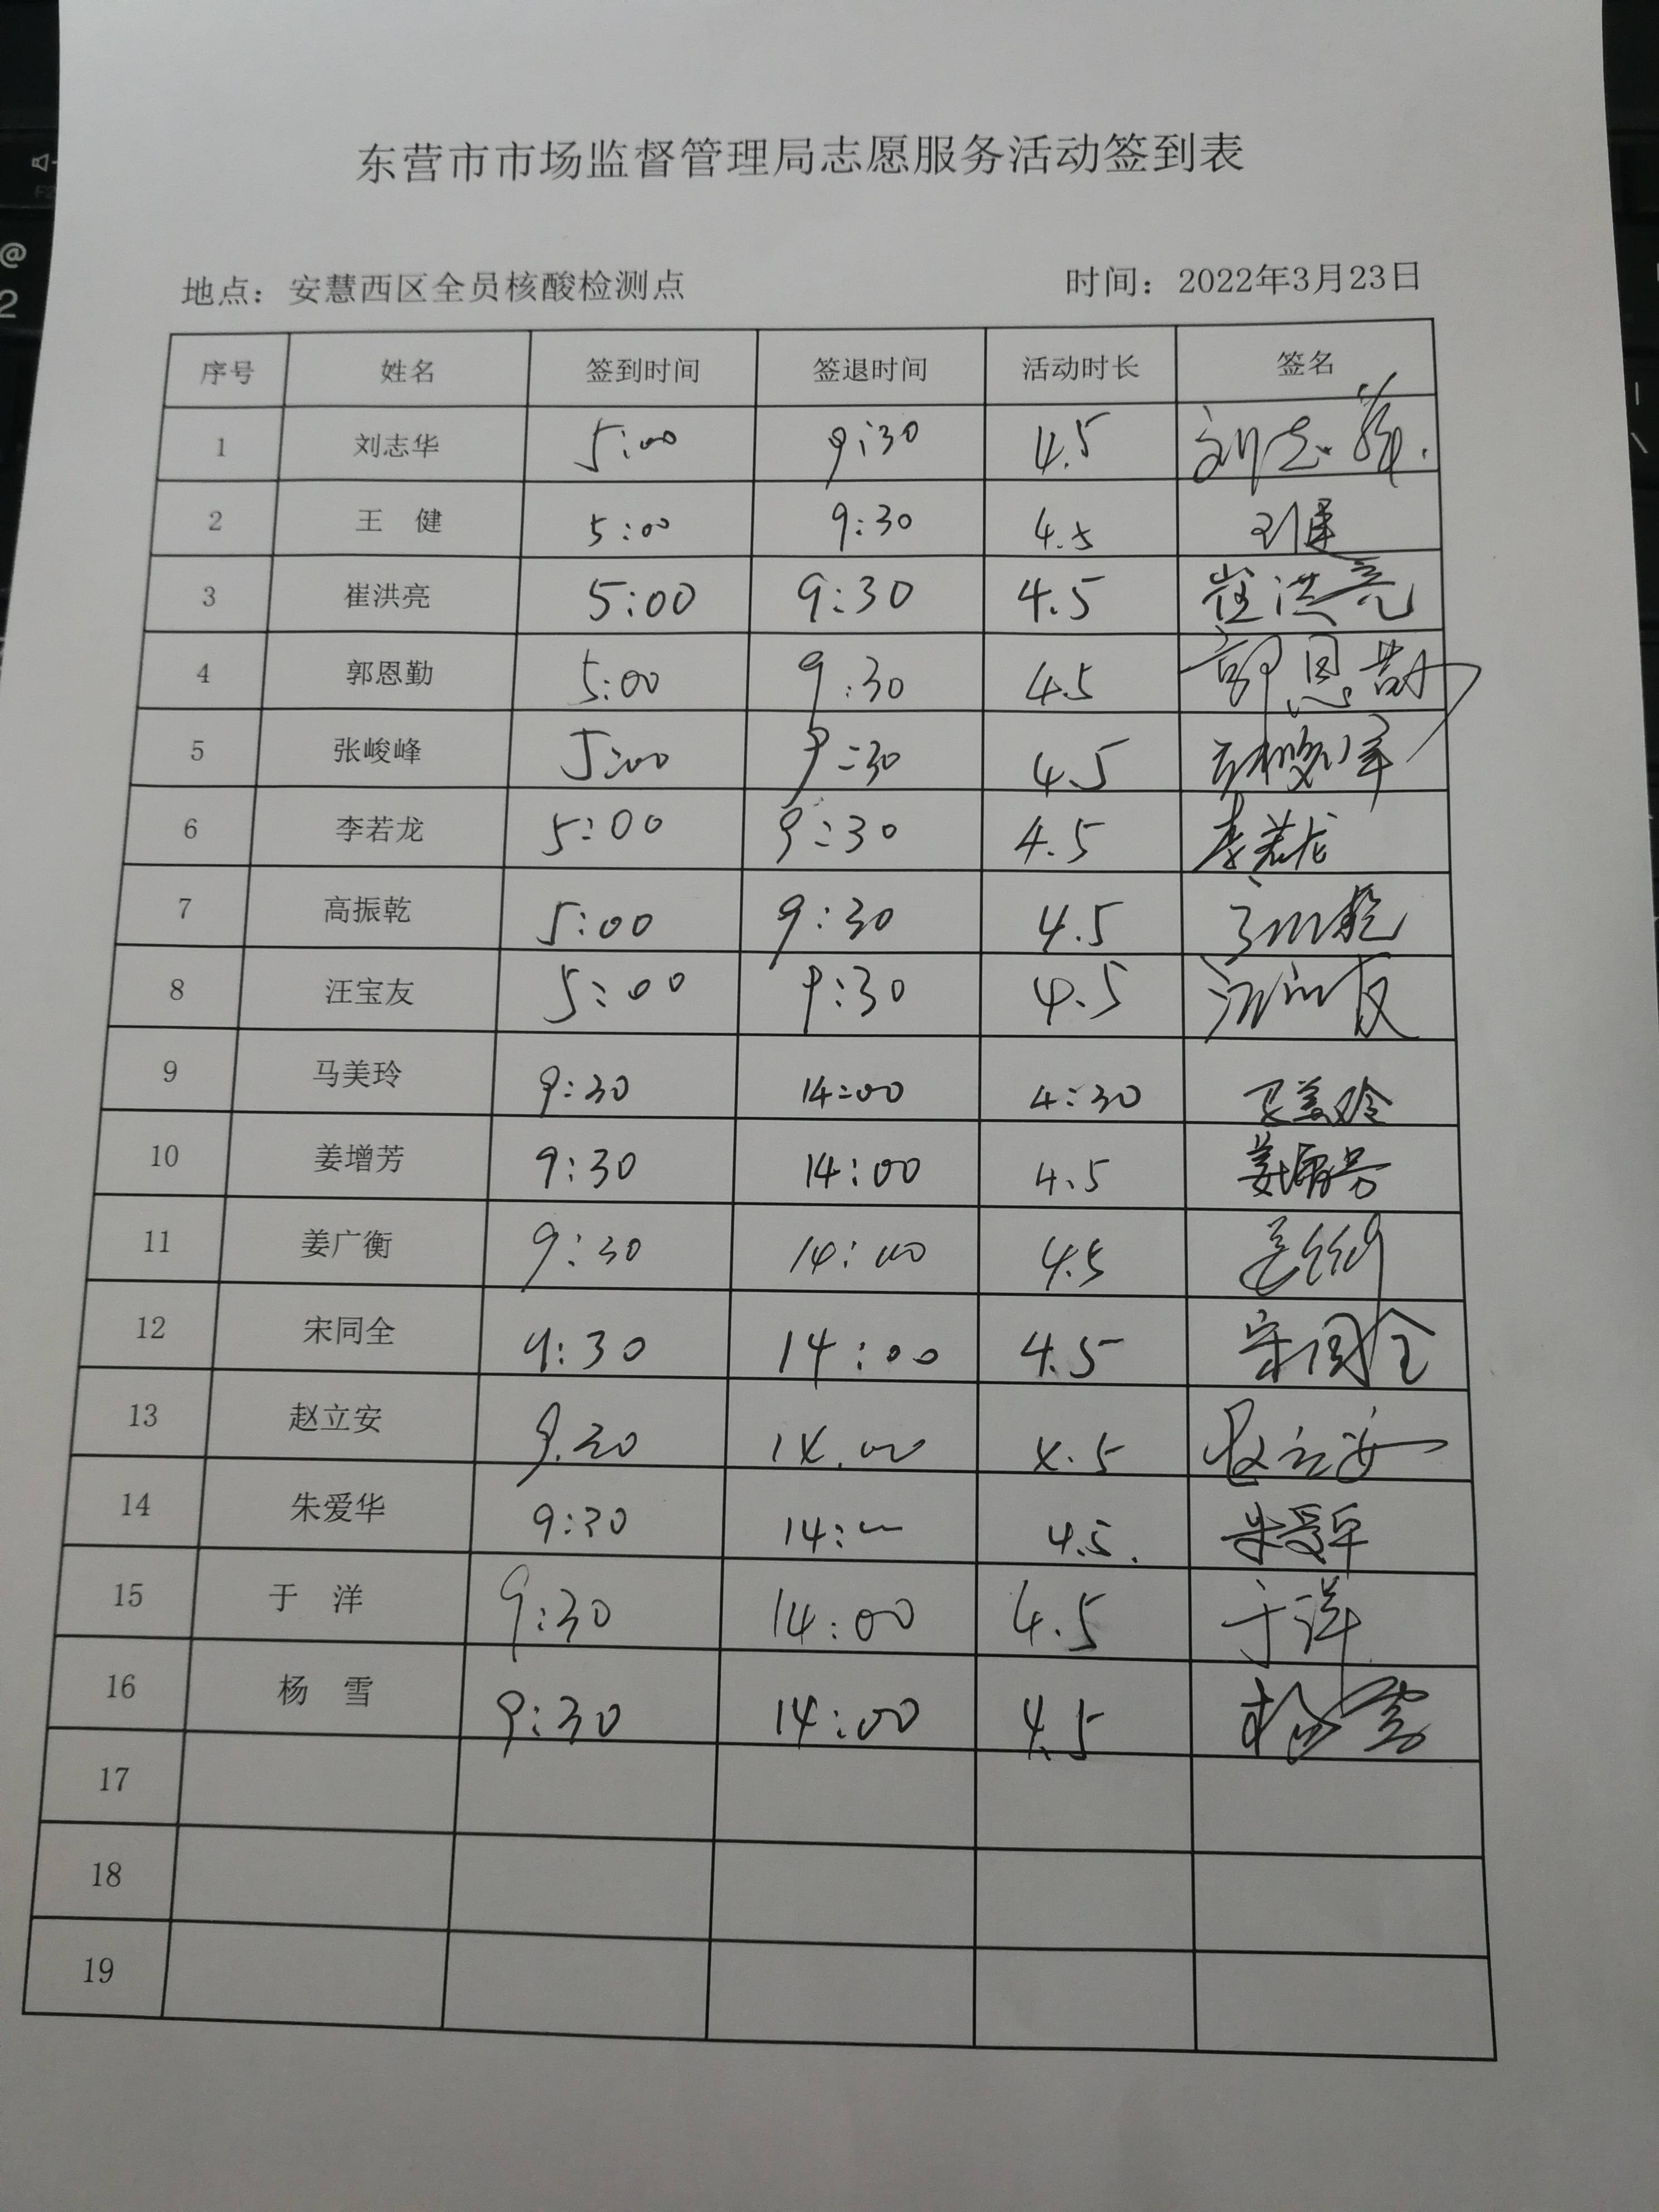 东营市市场监督管理局志愿服务活动签到表
地点：安慧西区全员核酸检测点 时间：2022年3月23日
序号 姓名 签到时间 签退时间 活动时长 签名
1 刘志华 5:00 9:30 4.5 刘志华
2 王 健 5:00 9:30 4.5 王健
3 崔洪亮 5:00 9:30 4.5 崔洪亮
4 郭恩勤 5:00 9:30 4.5 郭恩勤
5 张峻峰 5:00 9:30 4.5 张峻峰
6 李若龙 5:00 9:30 4.5 李若龙
7 高振乾 5:00 9:30 4.5 高振乾
8 汪宝友 5:00 9:30 4.5 汪宝友
9 马美玲 9:30 14:00 4:30 马美玲
10 姜增芳 9:30 14:00 4.5 姜增芳
11 姜广衡 9:30 14:00 4.5
12 宋同全 9:30 14:00 4.5 宋同全
13 赵立安 9.30 14.00 4.5 赵立安
14 朱爱华 9:30 14:00 4.5. 朱爱华
15 于 洋 9:30 14:00 4.5 于洋
16 杨 雪 9:30 14:00 4.5 杨雪
17
18
19
@
2